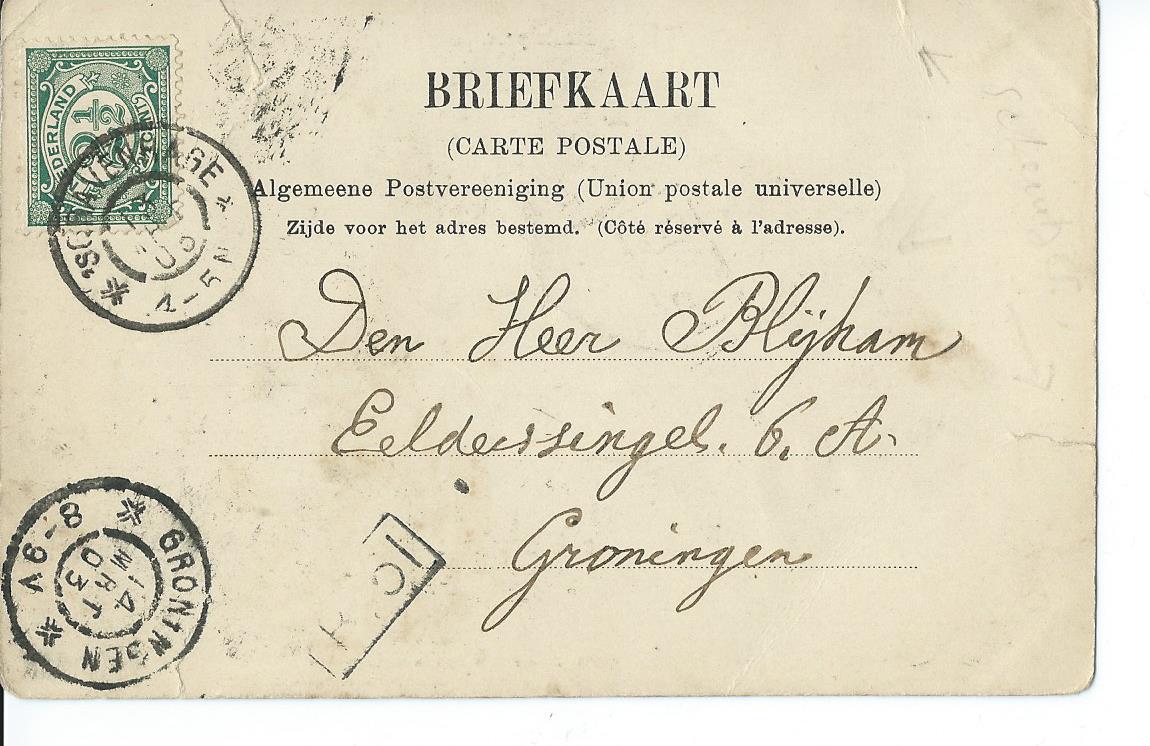 BRIEFKAART
(CARTE POSTALE)
Algemeene Postvereeniging (Union postale universelle)
Zijde voor het adres bestemd. (Côté réservé à l'adresse).
NEDERLAND
2½
CENT
'SGRAVENHAGE
4-5N
Den Heer Blijham
Eelderssingel. 6, A.
Groningen
GRONINGEN
14
MRT
03
6-8V